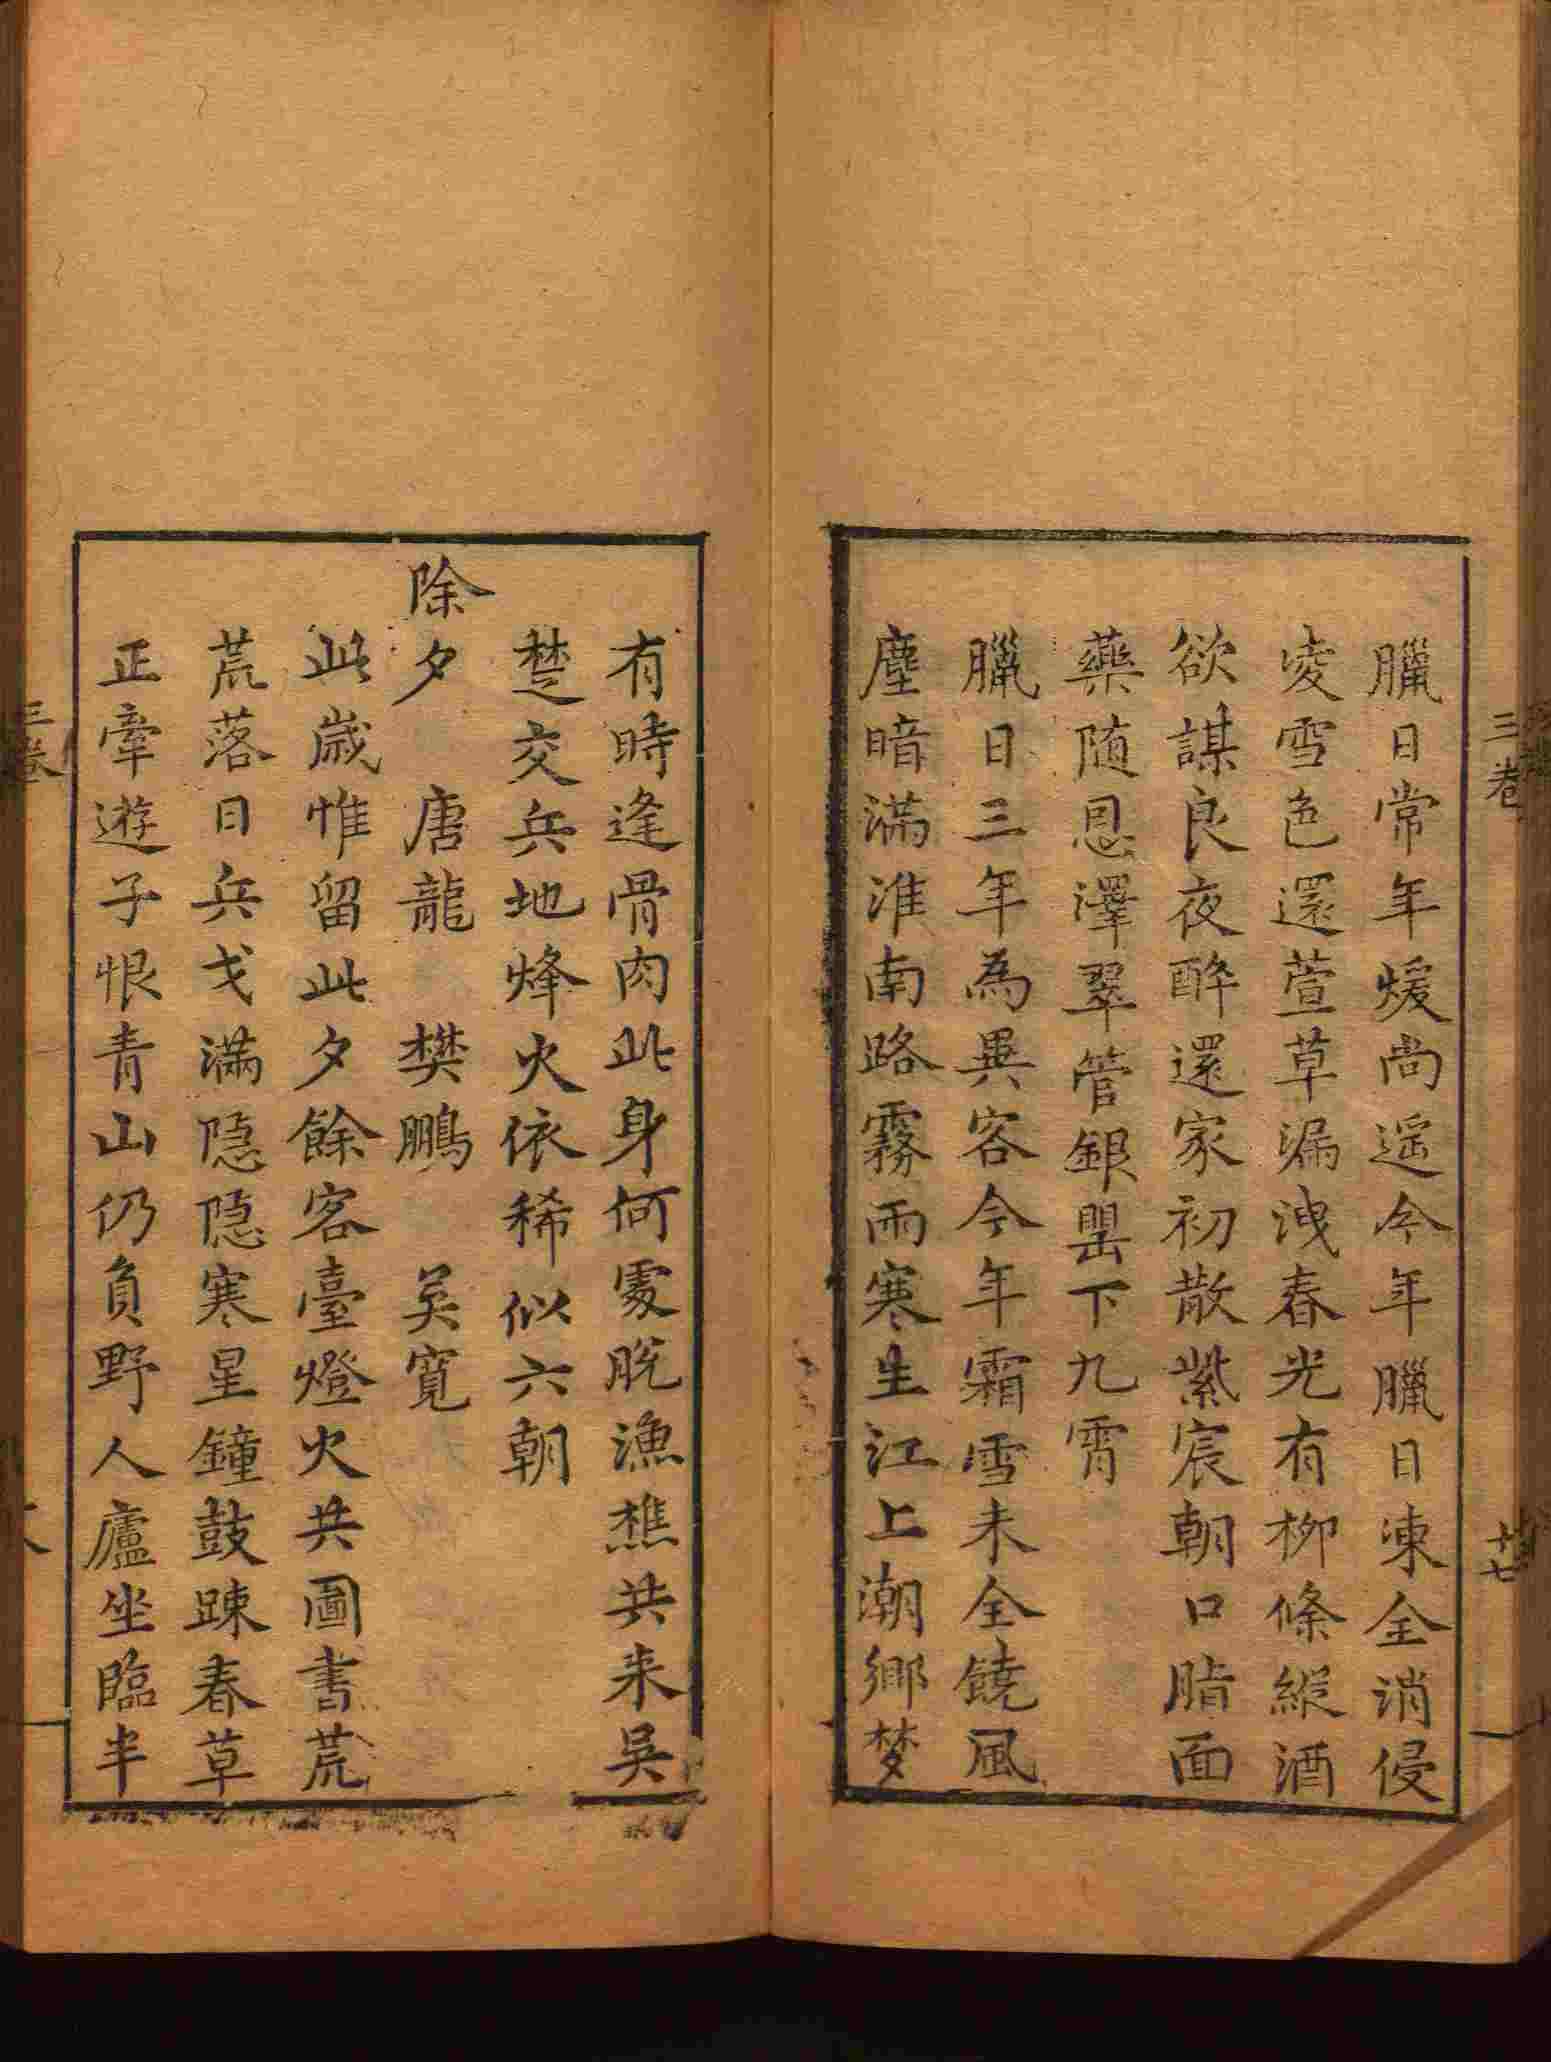 臘日常年煖尚遥今年臘日凍全消侵
凌雪色還萱草漏洩春光有柳條縱酒
欲謀良夜醉還家初散紫宸朝口脂面
藥随恩澤翠管銀罌下九霄
臘日三年為異客今年霜雪未全饒風
塵暗滿淮南路霧雨寒生江上潮鄉梦
三卷
十七
有時逢骨肉此身何處脱漁樵共来吳
楚交兵地烽火依稀似六朝
除夕 唐龍 樊鵬 吳寬
此歲惟留此夕餘客臺燈火共圖書荒
荒落日兵戈滿隠隠寒星鐘鼓踈春草
正牽遊子恨青山仍負野人廬坐臨半
三卷